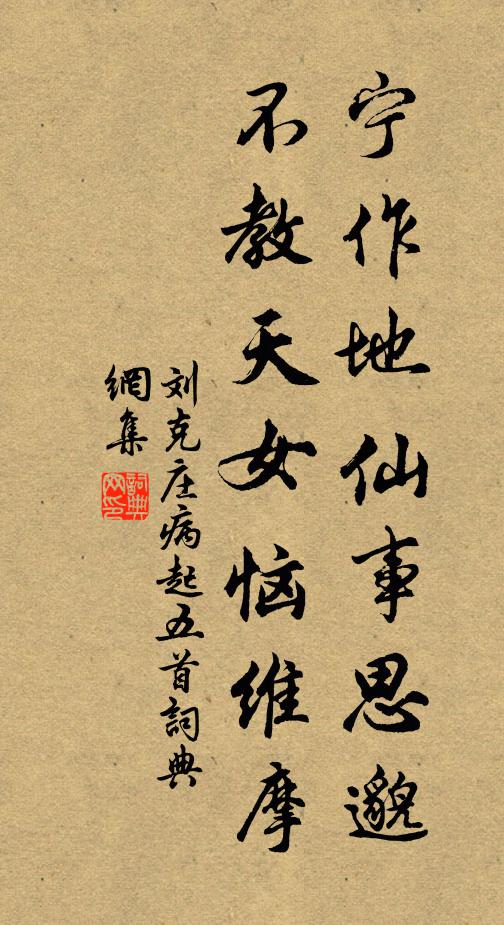 宁作地仙事思邈
不教天女恼维摩
刘克庄病起五首詞典
網集
詞典
网印